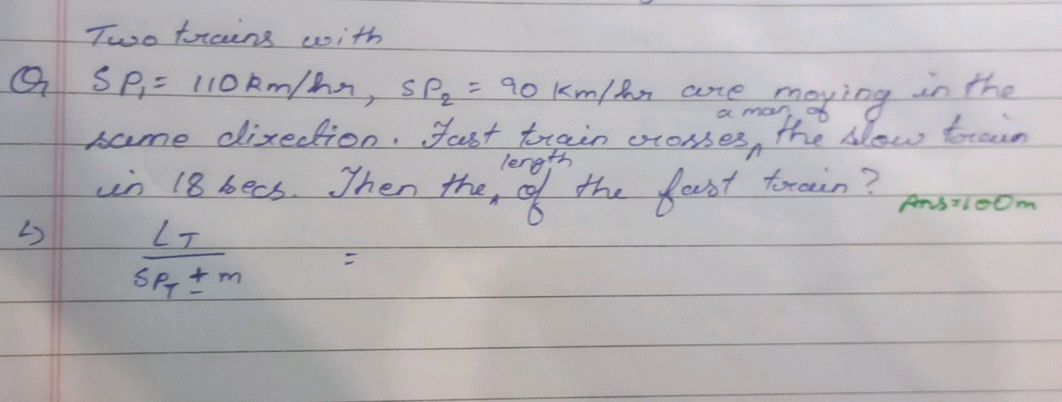 Two trains with
Q SP₁ = 110 km/hr, SP₂ = 90 km/hr are moving in the
same direction. Fast train crosses a man of the slow train
in 18 secs. Then the length of the fast train?
Ans = 100m
↳ L_T / SP_T ± m =